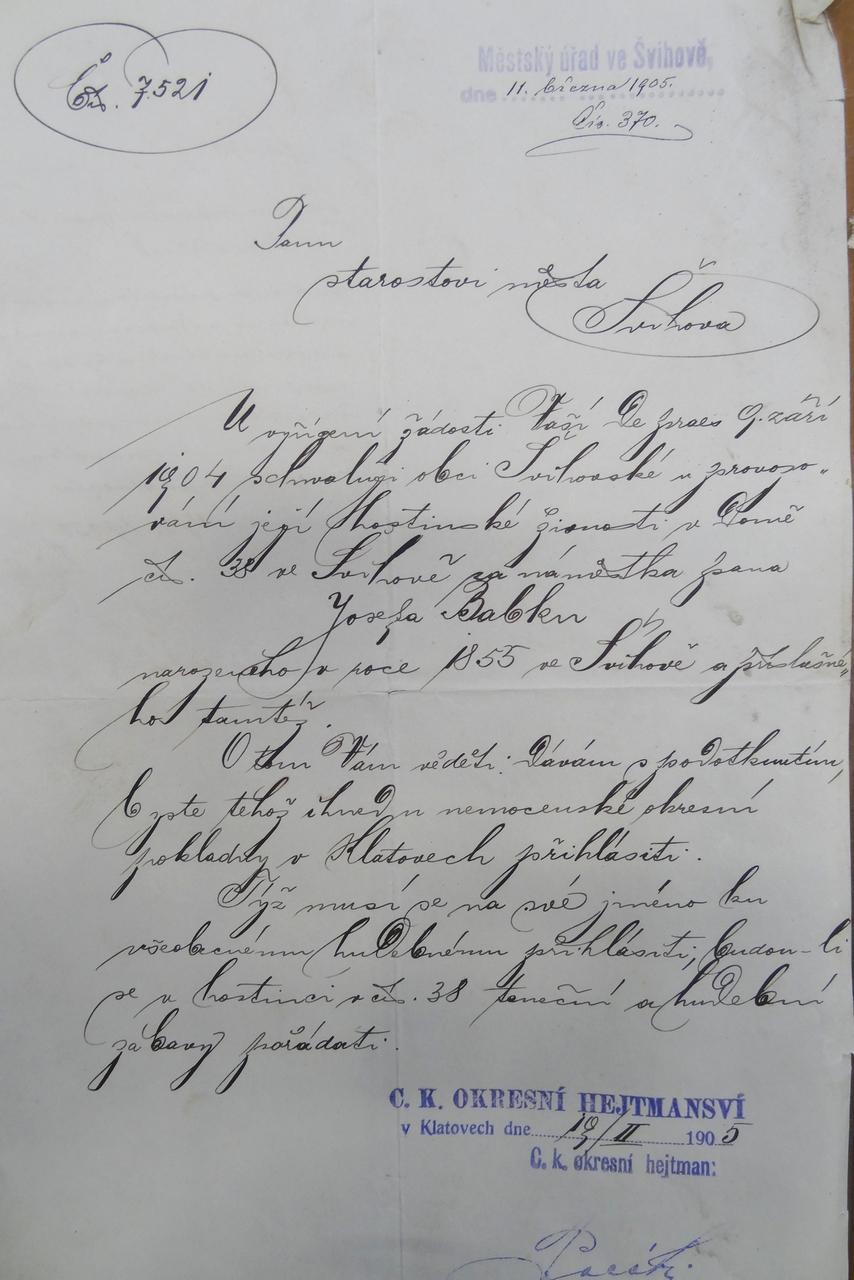 Čís. 7521
Městský úřad ve Švihově,
dne 11. března 1905.
Čís. 370.
Panu
starostovi města
Švihova
U vyřízení žádosti Vaší de praes 9. září
1904 schvaluji obci Švihovské u provoso„
vání její hostinské živnosti v domě
čís. 38 ve Švihově za náměstka pana
Josefa Babku
narozeného v roce 1855 ve Švihově a příslušné„
ho tamtéž.
O tom Vám věděti dávám s podotknutím,
byste téhož ihned u nemocenské okresní
pokladny v Klatovech přihlásiti.
Týž musí se na své jméno ku
všeobecnému hudebnému přihlásiti, budou-li
se v hostinci v čís. 38 taneční a hudební
zábavy pořádati.
C. K. OKRESNÍ HEJTMANSVÍ
v Klatovech dne 19/II 1905
C. k. okresní hejtman: